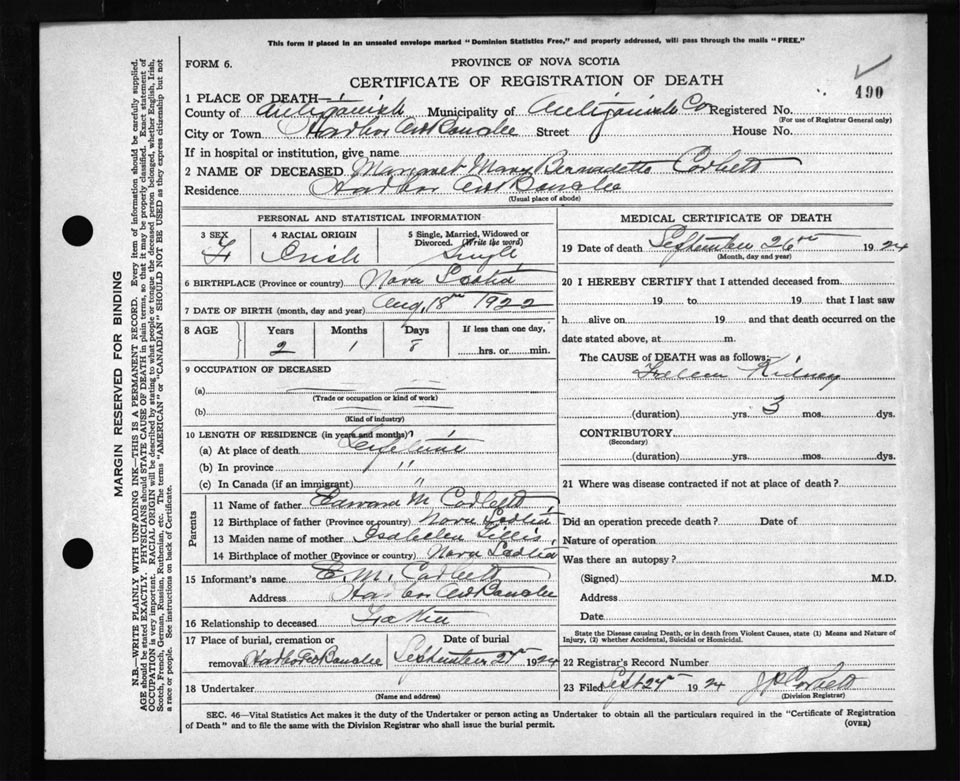 This form if placed in an unsealed envelope marked "Dominion Statistics Free," and properly addressed, will pass through the mails "FREE."
FORM 6.
PROVINCE OF NOVA SCOTIA
CERTIFICATE OF REGISTRATION OF DEATH
490
1 PLACE OF DEATH—
County of Antigonish Municipality of Antigonish Co Registered No.
(For use of Registrar General only)
City or Town Harbor Au Bouche Street House No.
If in hospital or institution, give name
2 NAME OF DECEASED Margaret Mary Bernadette Corbett
Residence Harbor Au Bouche
(Usual place of abode)
PERSONAL AND STATISTICAL INFORMATION
3 SEX 4 RACIAL ORIGIN 5 Single, Married, Widowed or Divorced. (Write the word)
F Irish Single
6 BIRTHPLACE (Province or country) Nova Scotia
7 DATE OF BIRTH (month, day and year) Aug, 18th 1922
8 AGE Years Months Days If less than one day,
2 1 8 hrs. or min.
9 OCCUPATION OF DECEASED
(a)
(Trade or occupation or kind of work)
(b)
(Kind of industry)
10 LENGTH OF RESIDENCE (in years and months)?
(a) At place of death Life time
(b) In province "
(c) In Canada (if an immigrant) "
Parents
11 Name of father Edward M Corbett
12 Birthplace of father (Province or country) Nova Scotia
13 Maiden name of mother Gillis
14 Birthplace of mother (Province or country) Nova Scotia
15 Informant's name E. M. Corbett
Address Harbor Au Bouche
16 Relationship to deceased Father
17 Place of burial, cremation or removal Harbor Au Bouche Date of burial September 27th 1924
18 Undertaker
(Name and address)
MEDICAL CERTIFICATE OF DEATH
19 Date of death September 26th 1924
(Month, day and year)
20 I HEREBY CERTIFY that I attended deceased from
19 to 19 that I last saw
h alive on 19 and that death occurred on the
date stated above, at m.
The CAUSE of DEATH was as follows:
Kidney
(duration) yrs. 3 mos. dys.
CONTRIBUTORY
(Secondary)
(duration) yrs. mos. dys.
21 Where was disease contracted if not at place of death?
Did an operation precede death? Date of
Nature of operation
Was there an autopsy?
(Signed) M.D.
Address
Date
State the Disease causing Death, or in death from Violent Causes, state (1) Means and Nature of
Injury, (2) whether Accidental, Suicidal or Homicidal.
22 Registrar's Record Number
23 Filed Sept 27th 1924 J P Corbett
(Division Registrar)
SEC. 46—Vital Statistics Act makes it the duty of the Undertaker or person acting as Undertaker to obtain all the particulars required in the "Certificate of Registration
of Death" and to file the same with the Division Registrar who shall issue the burial permit.
(OVER)
MARGIN RESERVED FOR BINDING
N.B.—WRITE PLAINLY WITH UNFADING INK—THIS IS A PERMANENT RECORD. Every item of information should be carefully supplied.
AGE should be stated EXACTLY. PHYSICIANS should STATE CAUSE OF DEATH in plain terms, so that it may be properly classified. Exact statement of
OCCUPATION is very important. RACIAL ORIGIN will be described by stating to what people or tongue the deceased person belonged, whether English, Irish,
Scotch, French, German, Russian, Ruthenian, etc. The terms "AMERICAN" or "CANADIAN" SHOULD NOT BE USED as they express citizenship but not
a race or people. See instructions on back of Certificate.